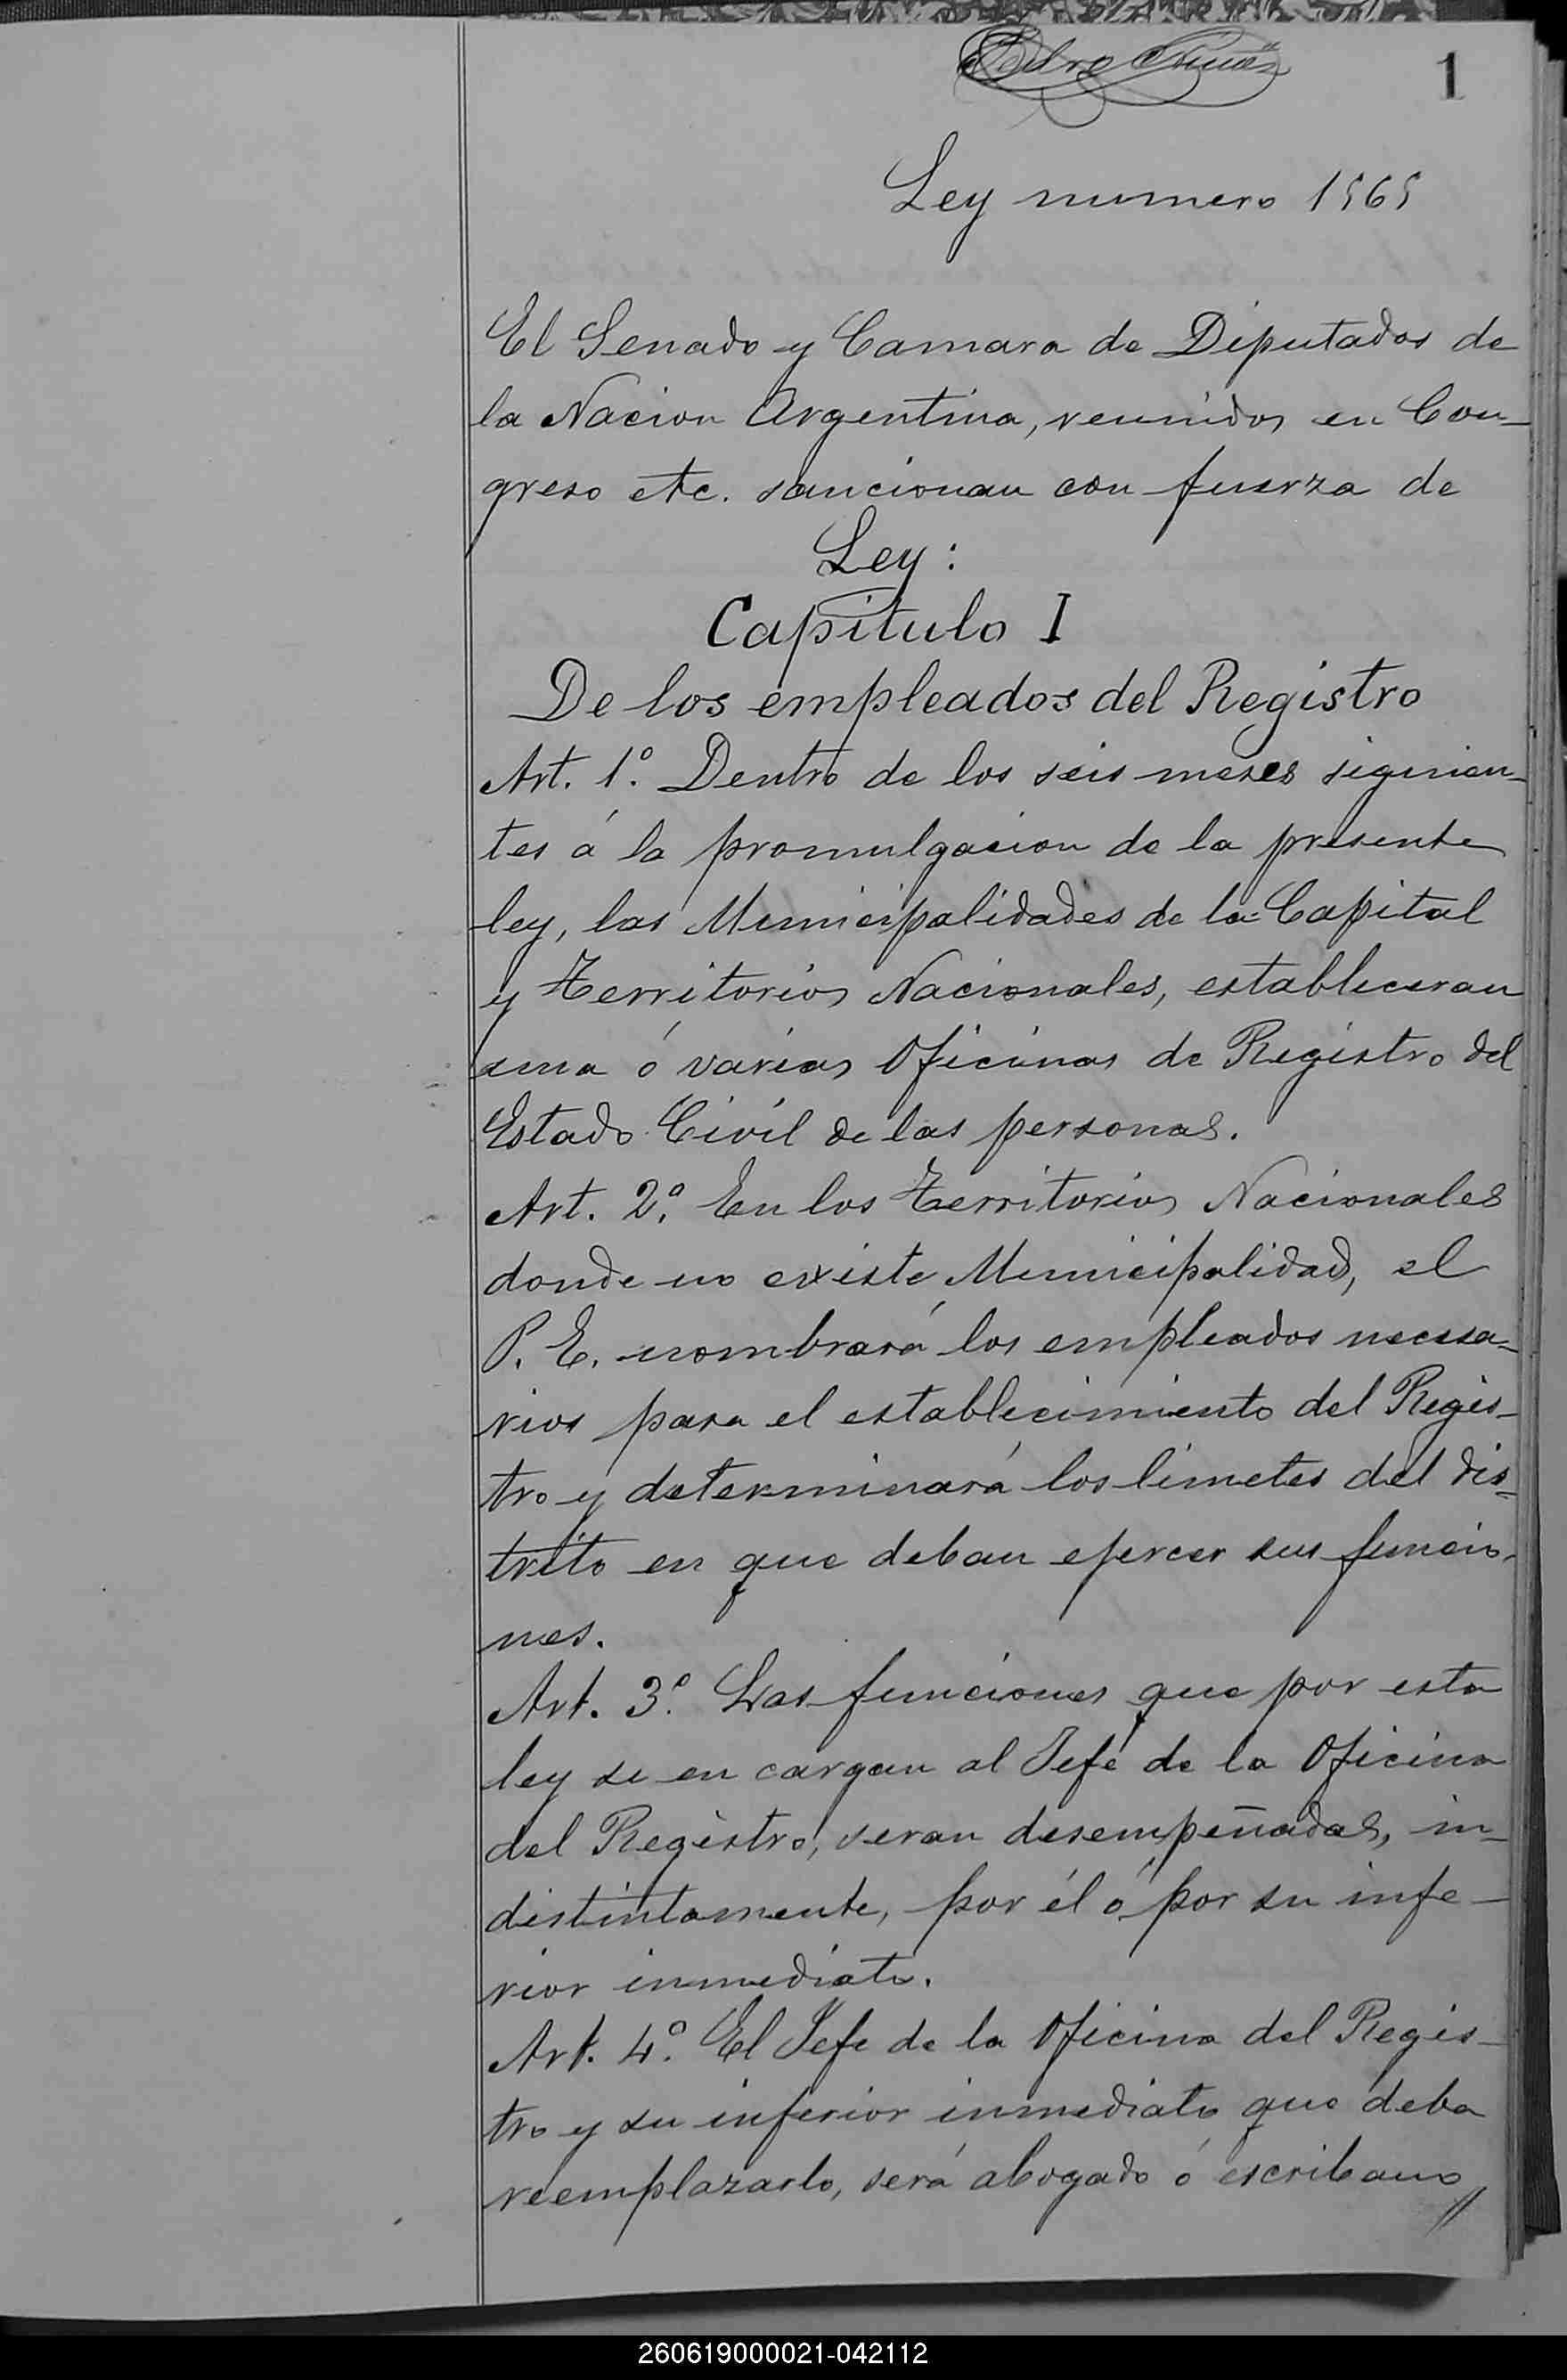 Pedro
1
Ley numero 1565
El Senado y Camara de Diputados de
la Nacion Argentina, reunidos en Con-
greso etc. sancionan con fuerza de
Ley:
Capitulo I
De los empleados del Registro
Art. 1º. Dentro de los seis meses siguien-
tes á la promulgacion de la presente
ley, las Municipalidades de la Capital
y Territorios Nacionales, estableceran
una ó varias Oficinas de Registro del
Estado Civil de las personas.
Art. 2º. En los Territorios Nacionales
donde no existe Municipalidad, el
P. E. nombrará los empleados necesa-
rios para el establecimiento del Regis-
tro y determinará los limetes del dis-
trito en que deban ejercer sus funcio-
nes.
Art. 3º. Las funciones que por esta
ley se en cargan al Jefe de la Oficina
del Registro, seran desempeñadas, in-
distintamente, por él ó por su infe-
rior inmediato.
Art. 4º. El Jefe de la Oficina del Regis-
tro y su inferior inmediato que deba
reemplazarlo, será abogado ó escribano
260619000021-042112